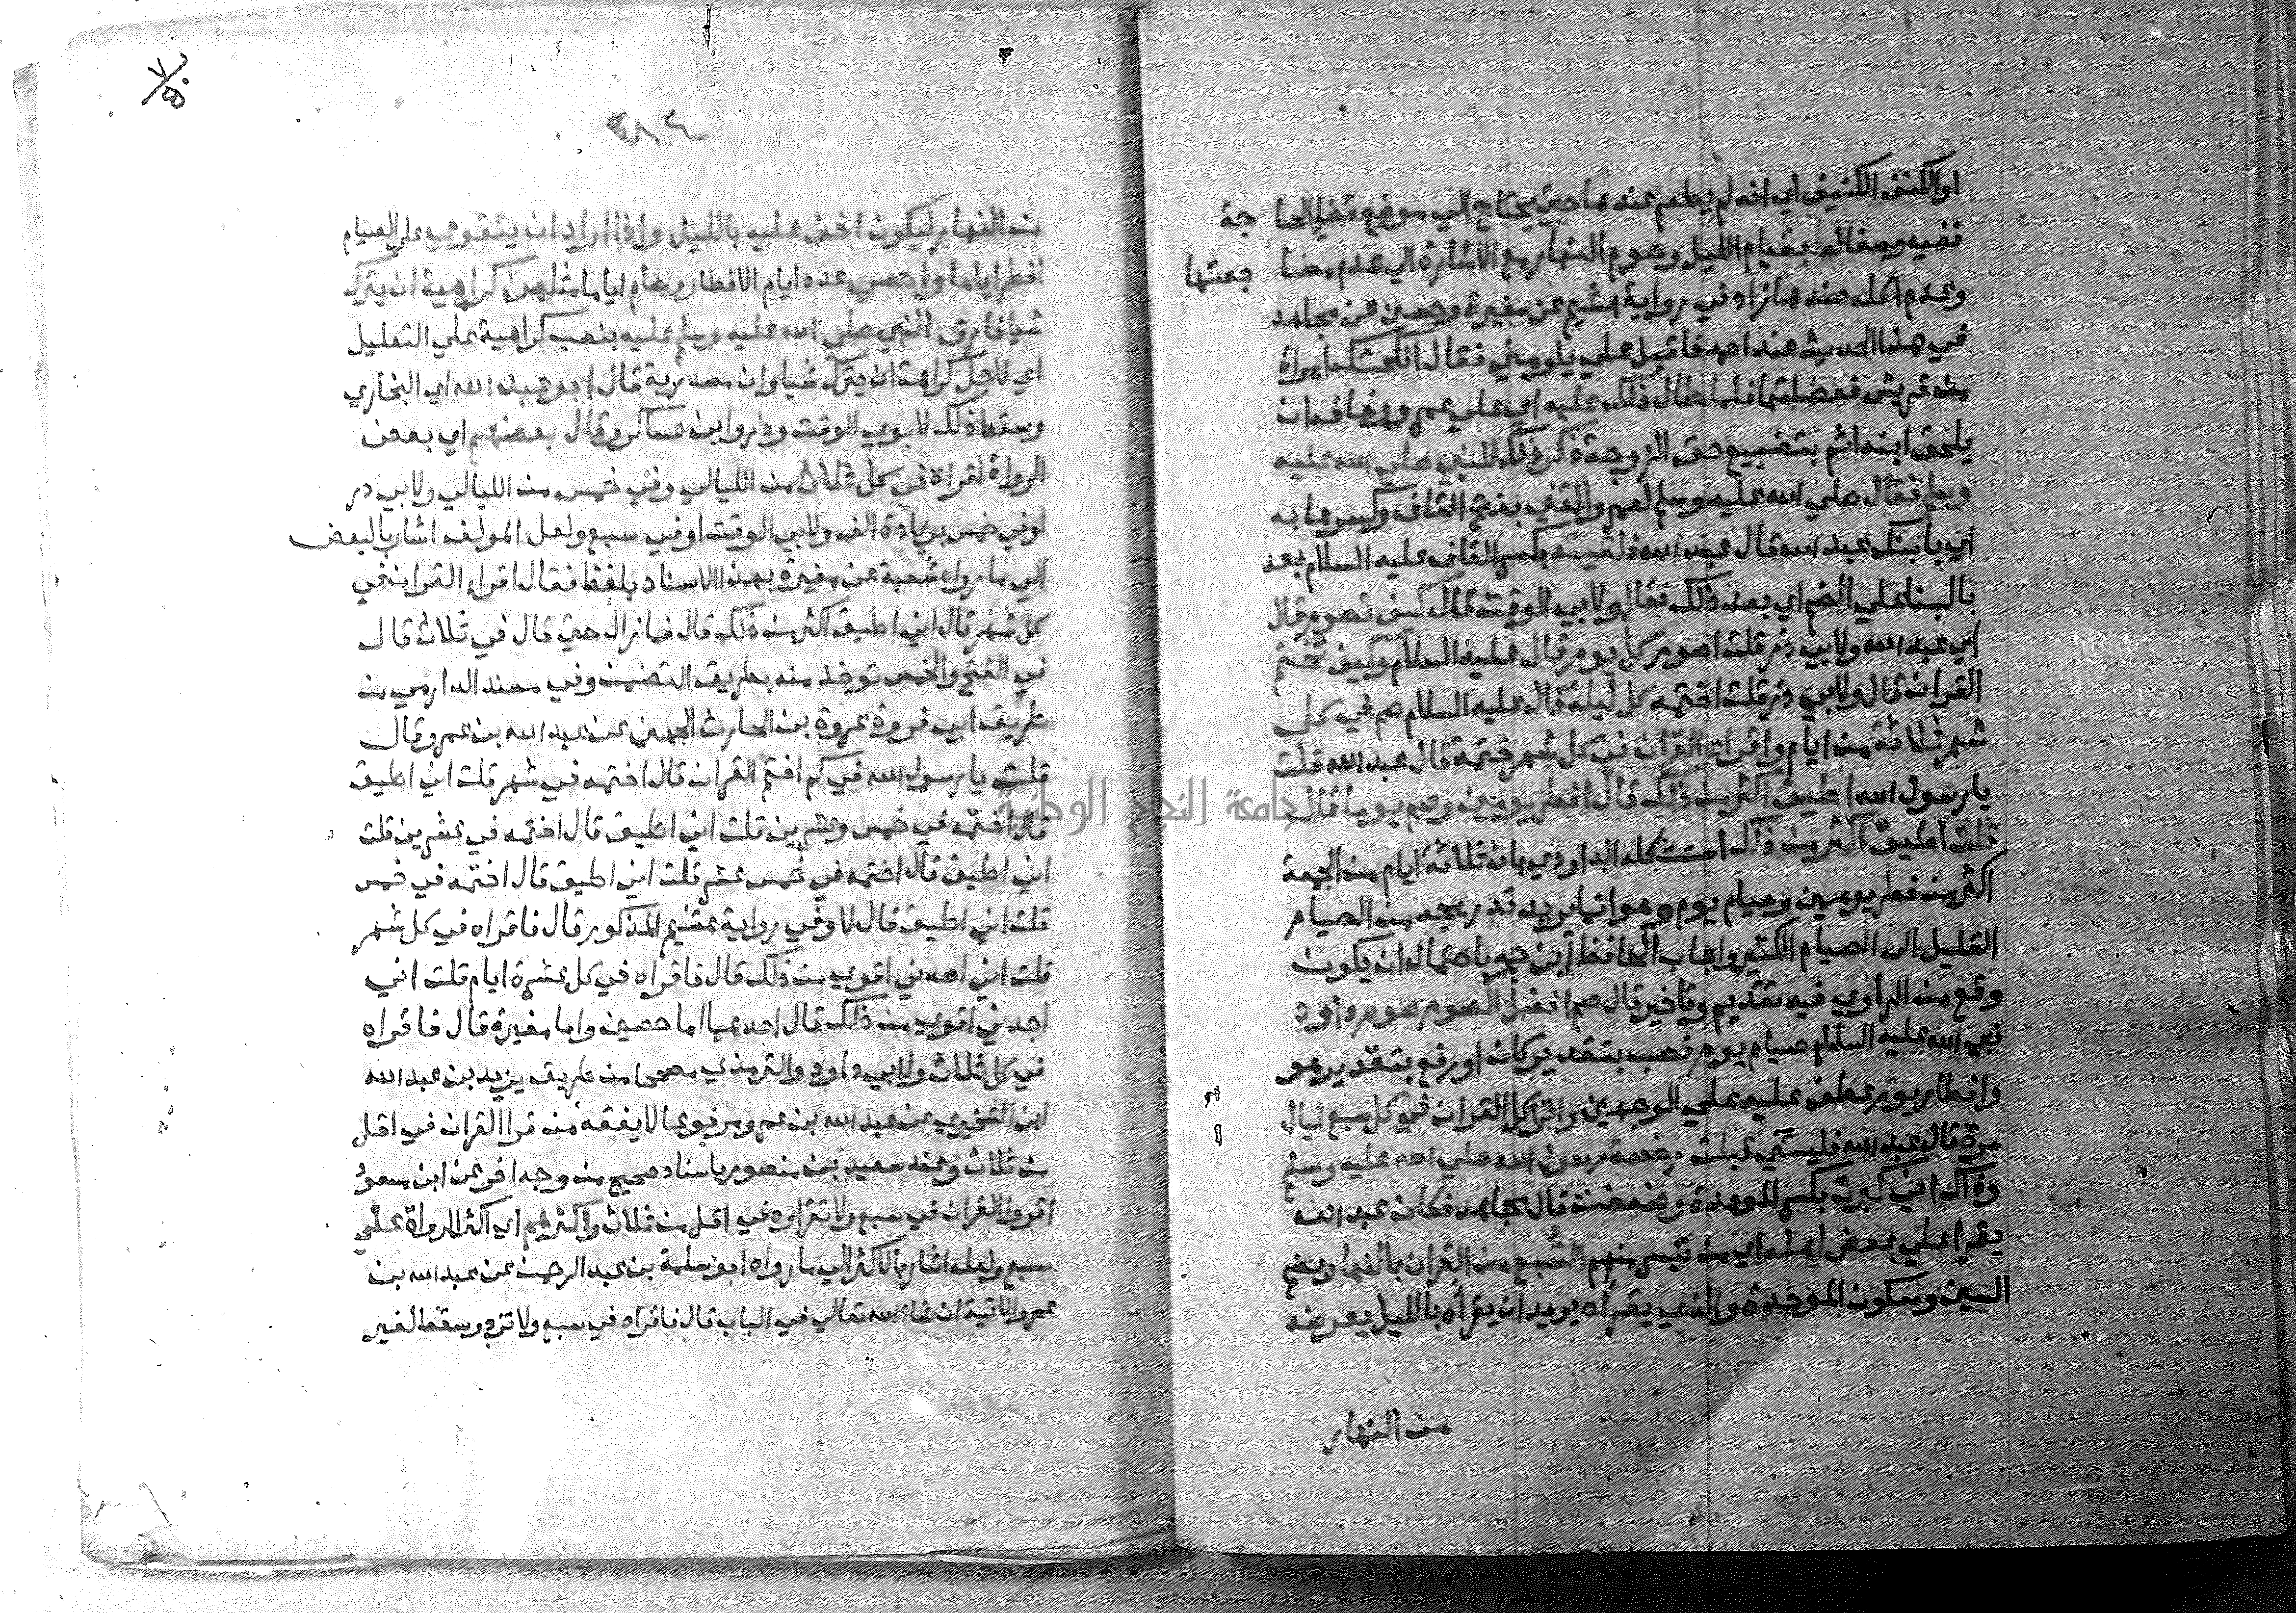 او الكنف الكنيف اي انه لم يطعم عندها حتي يحتاج الي موضع قضاء الحا جة
ففيه وصفاله بقيام الليل وصوم النهار مع الاشارة الي عدم مضا جعتها
وعدم اكله عندها زاد في رواية هشيم عن مغيرة وحصين عن مجاهد
في هذا الحديث عند احمد فاقبل علي يلومني فقال انكحتك امراة
من قريش فعضلتها فلما طال ذلك عليه اي علي عمرو وخاف ان
يلحق ابنه اثم بتضييع حق الزوجة ذكر ذلك للنبي صلي الله عليه
وسلم فقال صلي الله عليه وسلم لعمرو القني بفتح القاف وكسرها به
اي بابنك عبد الله قال عبد الله فلقيته بكسر القاف عليه السلام بعد
بالبنا علي الضم اي بعد ذلك فقال ولابي الوقت قال كيف تصوم قال
اي عبد الله ولابي ذر قلت اصوم كل يوم قال عليه السلام وكيف تختم
القران قال ولابي ذر قلت اختم كل ليلة قال عليه السلام صم في كل
شهر ثلاثة من ايام واقرا القران في كل شهر ختمة قال عبد الله قلت
يا رسول الله اطيق اكثر من ذلك قال افطر يومين وصم يوما قال
قلت اطيق اكثر من ذلك استشكله الداودي بان ثلاثة ايام من الجمعة
اكثر من فطر يومين وصيام يوم وهو انما يريد تدريجه من الصيام
القليل الي الصيام الكثير واجاب الحافظ ابن حجر باحتمال ان يكون
وقع من الراوي فيه تقديم وتاخير قال صم افضل الصوم صوم داود
نبي الله عليه السلام صيام يوم نصب بتقدير كان او رفع بتقدير هو
وافطار يوم عطف عليه علي الوجهين واقرا كل القران في كل سبع ليال
مرة قال عبد الله فليتني قبلت رخصة رسول الله صلي الله عليه وسلم
وذاك اني كبرت بكسر الموحدة وضعفت قال مجاهد فكان عبد الله
يقرا علي بعض اهله اي من تيسر منهم السبع من القران بالنهار بضم
السين وسكون الموحدة والذي يقراه يريد ان يقراه بالليل يعرضه
من النهار
٤٨٤
من النهار ليكون اخف عليه بالليل واذا اراد ان يتقوي علي الصيام
افطر اياما واحصي عده ايام الافطار وصام اياما مثلهن كراهية ان يترك
شيا فارق النبي صلي الله عليه وسلم عليه بنصب كراهية علي التعليل
اي لاجل كراهة ان يترك شيا وان مصدرية قال ابو عبد الله اي البخاري
وسقط ذلك لابوي الوقت وذر وابن عساكر وقال بعضهم اي بعض
الرواة اقراه في كل ثلاث من الليالي وفي خمس من الليالي ولابي ذر
او في خمس بزيادة الف ولابي الوقت او في سبع ولعل المولف اشار بالبعض
الي ما رواه شعبة عن مغيرة بهذا الاسناد بلفظ فقال اقراء القران في
كل شهر قال اني اطيق اكثر من ذلك قال فما زال حتي قال في ثلاث قال
في الفتح والخمس توخذ منه بطريق التضمن وفي مسند الدارمي من
طريق ابي فروة عروة بن الحارث الجهني عن عبد الله بن عمرو قال
قلت يا رسول الله في كم اختم القران قال اختمه في شهر قلت اني اطيق
قال اختمه في خمس وعشرين قلت اني اطيق قال اختمه في عشرين قلت
اني اطيق قال اختمه في خمس عشر قلت اني اطيق قال اختمه في خمس
قلت اني اطيق قال لا وفي رواية هشيم المذكور قال فاقراه في كل شهر
قلت اني اجدني اقوي من ذلك قال فاقراه في كل عشرة ايام قلت اني
اجدني اقوي من ذلك قال احدهما اما حصين واما مغيرة قال فاقراه
في كل ثلاث ولابي داود والترمذي مصححا من طريق يزيد بن عبد الله
ابن الشخير عن عبد الله بن عمرو مرفوعا لا يفقه من قرا القران في اقل
من ثلاث وعند سعيد بن منصور باسناد صحيح من وجه اخر عن ابن مسعود
اقروا القران في سبع ولا تقراوه في اقل من ثلاث واكثرهم اي اكثر الرواة علي
سبع ولعله اشار بالاكثر الي ما رواه ابو سلمة بن عبد الرحمن عن عبد الله بن
عمرو الاتية ان شاء الله تعالي في الباب قال فاقراه في سبع ولا تزد وسقط لغير
جامعة النجاح الوطنية